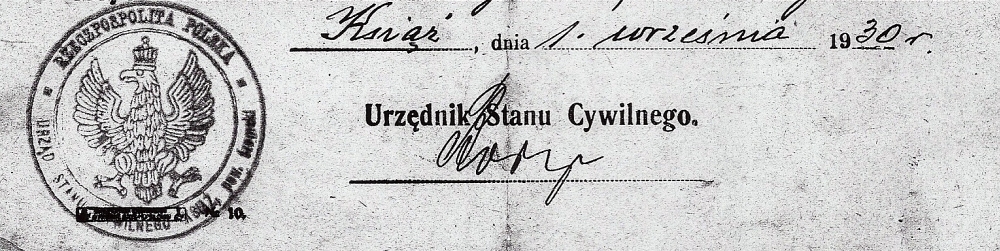 RZECZPOSPOLITA POLSKA
URZĄD STANU CYWILNEGO
Książ, dnia 1. września 1930 r.
Urzędnik Stanu Cywilnego.
10.